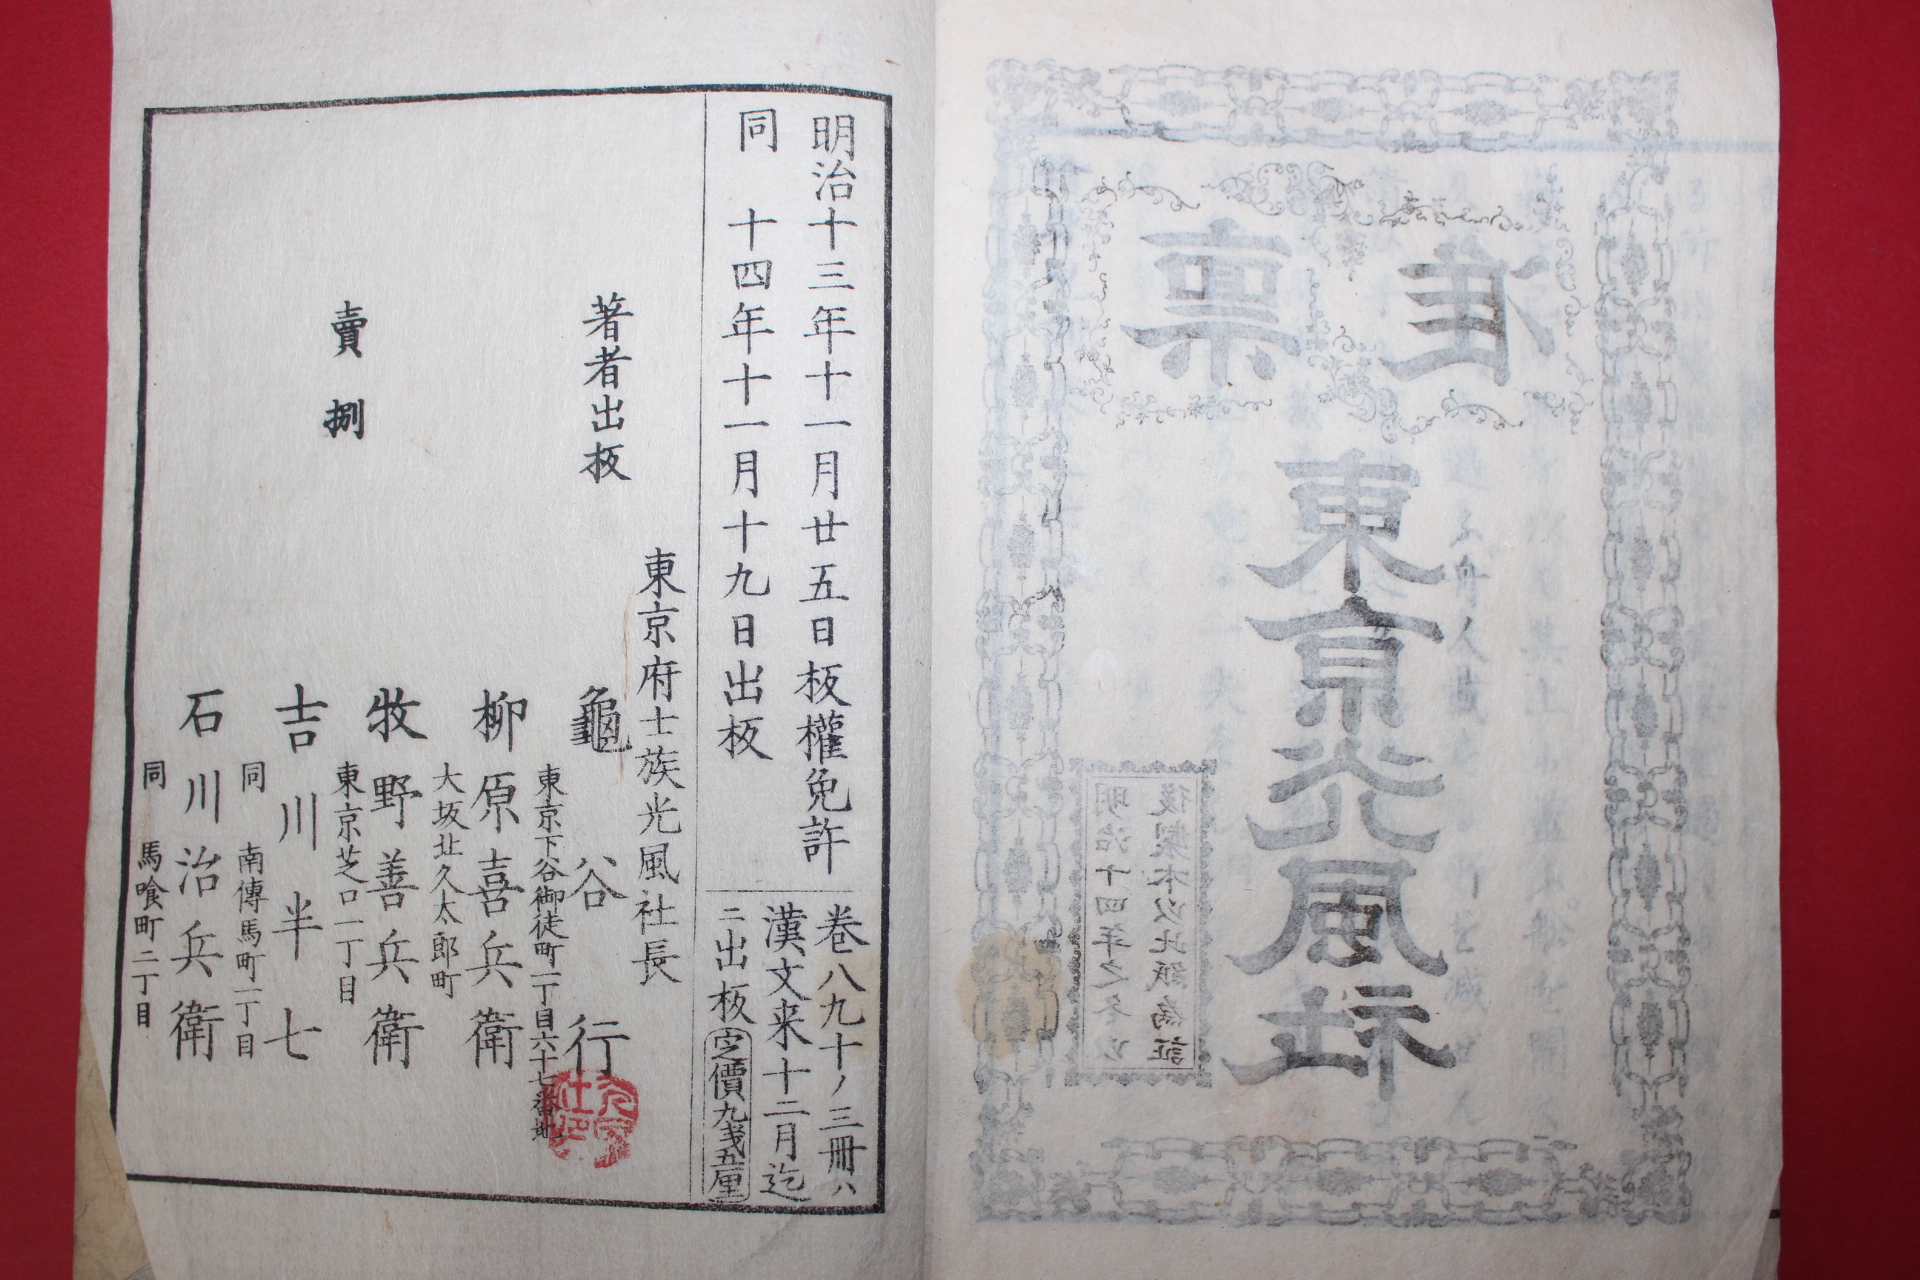 准票
東京光風社
後製本以此紙為証
明治十四年之冬以
明治十三年十一月廿五日板權免許
同 十四年十一月十九日出板
卷八九十ノ三冊ハ
漢文来十二月迄
ニ出板
定價九戔五厘
東京府士族光風社長
著者出板
龜谷行
東京下谷御徒町一丁目六十七番地
賣捌
柳原喜兵衛
大坂北久太郎町
牧野善兵衛
東京芝口一丁目
吉川半七
同 南傳馬町一丁目
石川治兵衛
同 馬喰町二丁目